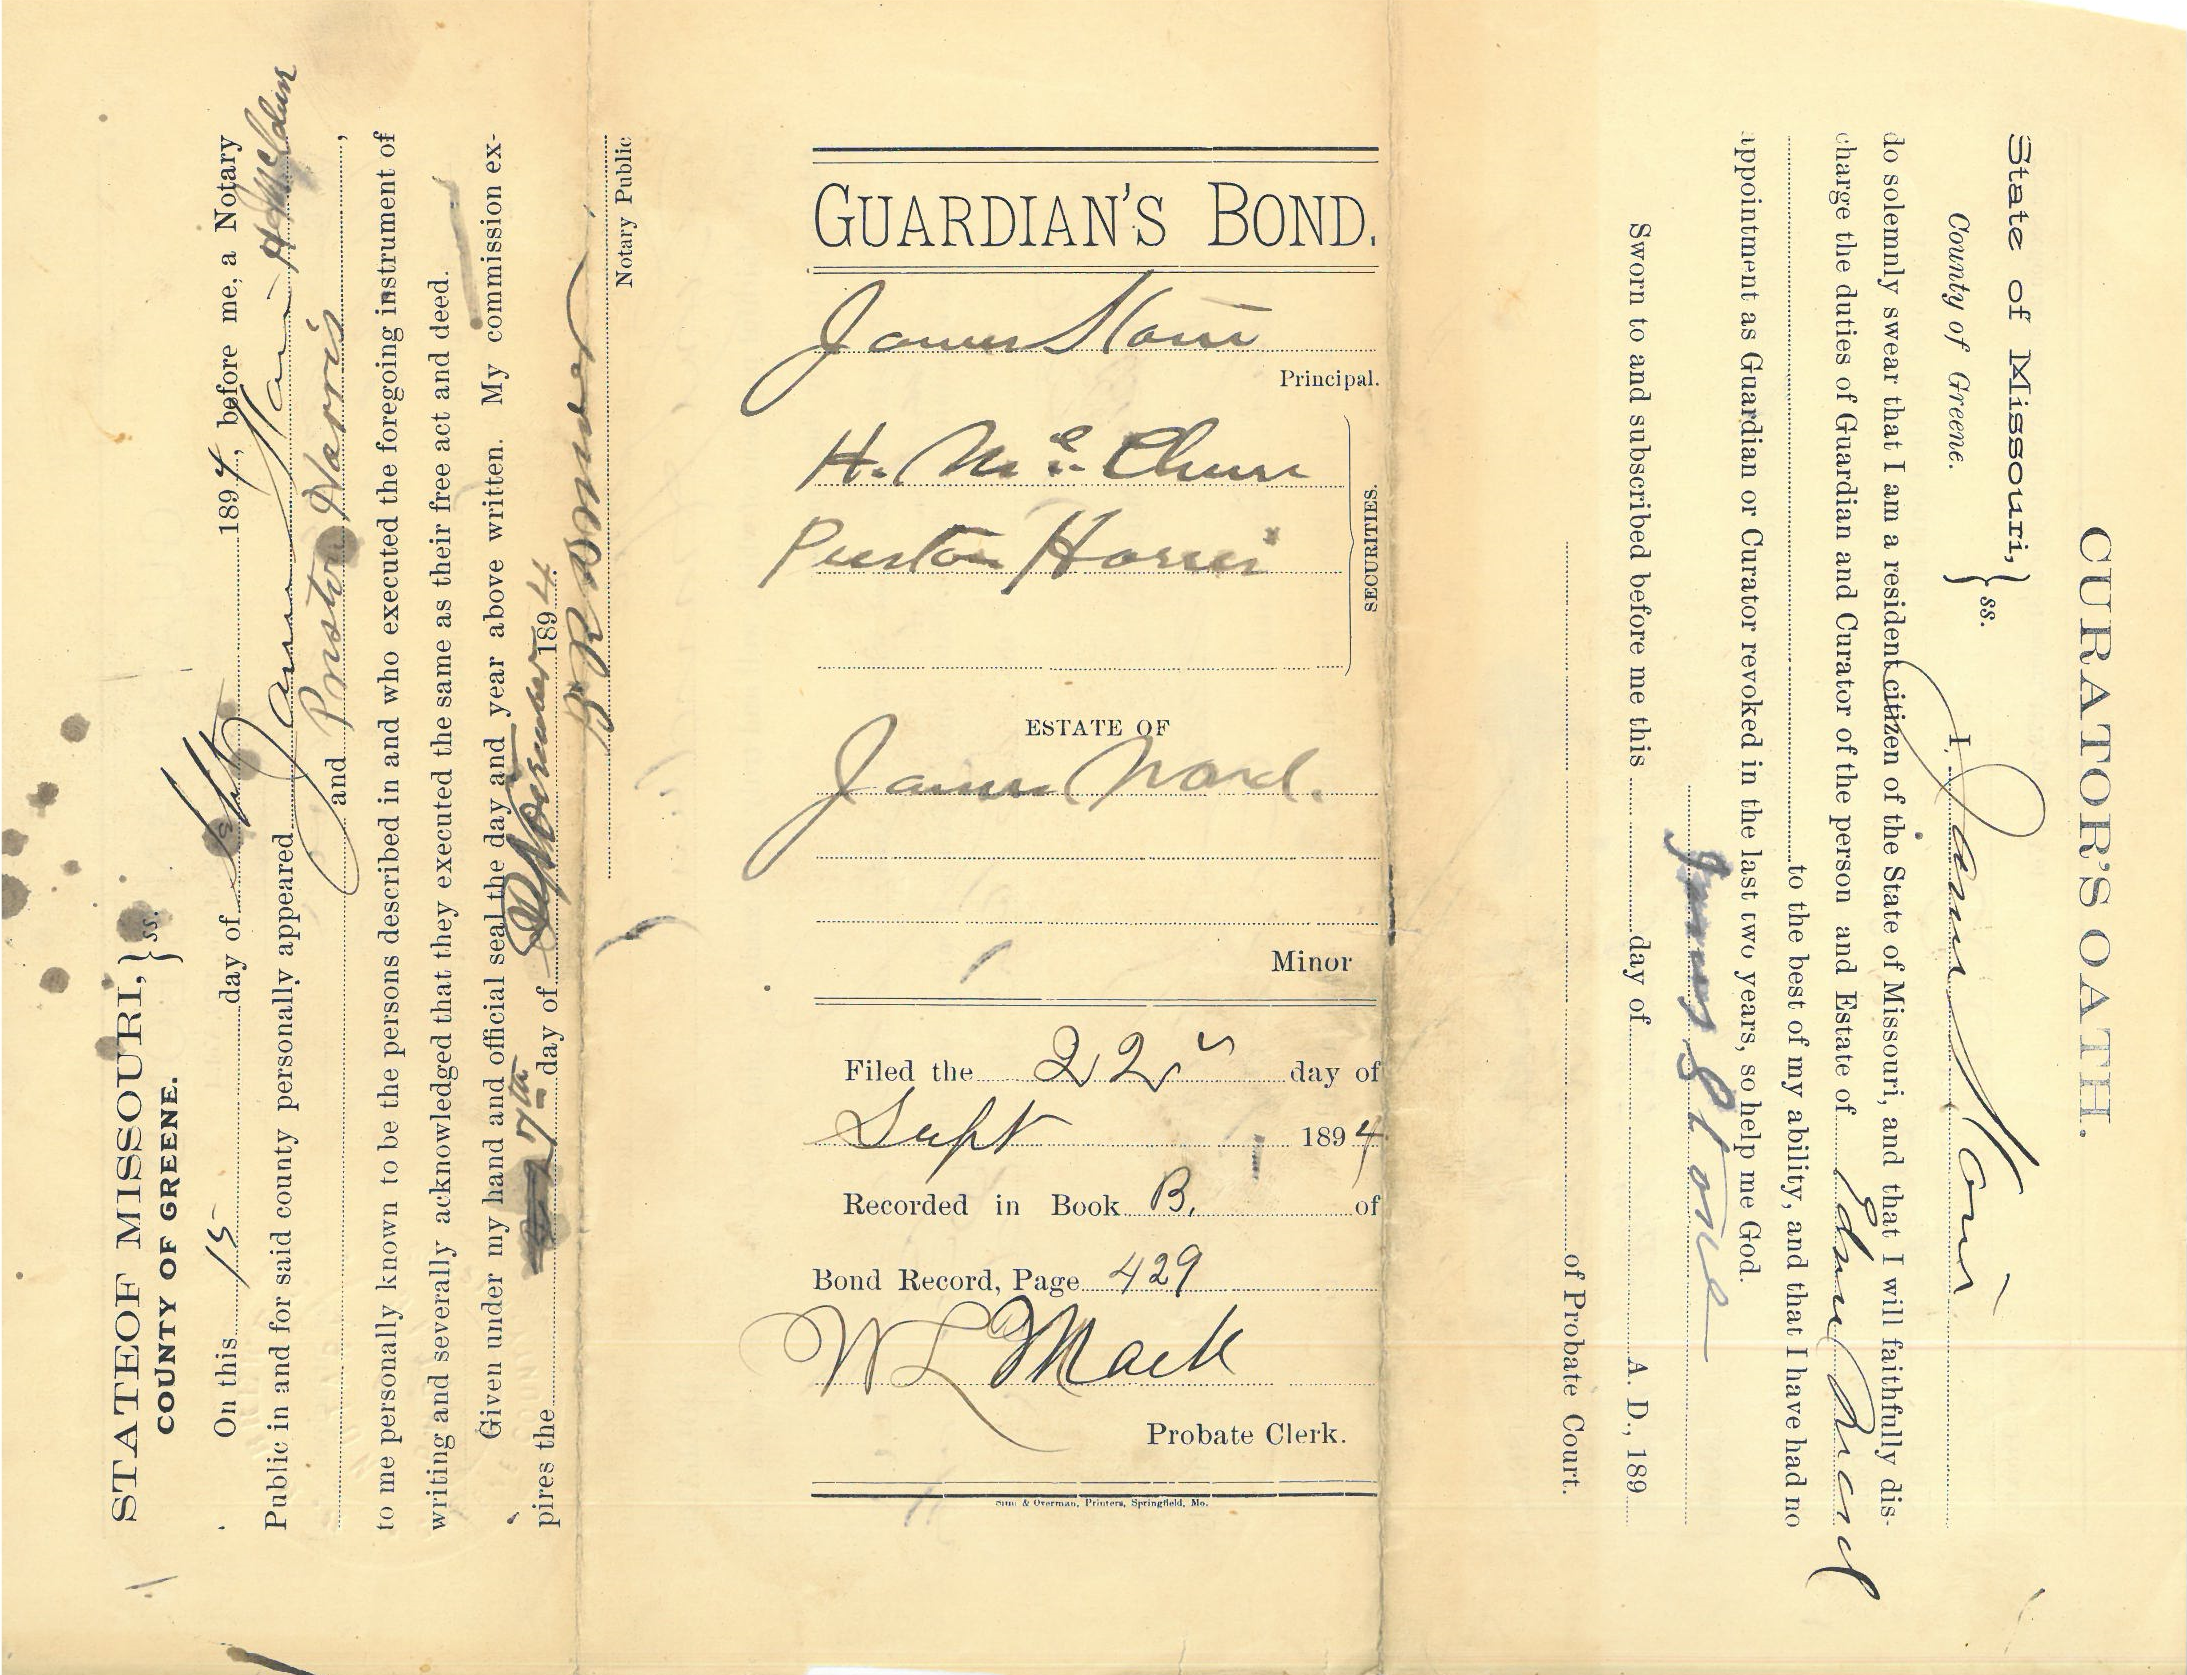 STATE OF MISSOURI, } ss.
COUNTY OF GREENE.
On this 15 day of Sept 1894, before me, a Notary
Public in and for said county personally appeared James
and Preston Harris,
to me personally known to be the persons described in and who executed the foregoing instrument of
writing and severally acknowledged that they executed the same as their free act and deed.
Given under my hand and official seal the day and year above written. My commission ex-
pires the 7th day of 1894.
Notary Public
GUARDIAN'S BOND.
James Stone
Principal.
H. Mc
Preston Harris
SECURITIES.
ESTATE OF
James
Minor
Filed the 22 day of
Sept 1894
Recorded in Book B. of
Bond Record, Page 429
W L Mack
Probate Clerk.
& Overman, Printers, Springfield, Mo.
CURATOR'S OATH.
State of Missouri, } ss.
County of Greene.
I, James Stone
do solemnly swear that I am a resident citizen of the State of Missouri, and that I will faithfully dis-
charge the duties of Guardian and Curator of the person and Estate of
to the best of my ability, and that I have had no
appointment as Guardian or Curator revoked in the last two years, so help me God.
James Stone
Sworn to and subscribed before me this day of A. D., 189
of Probate Court.